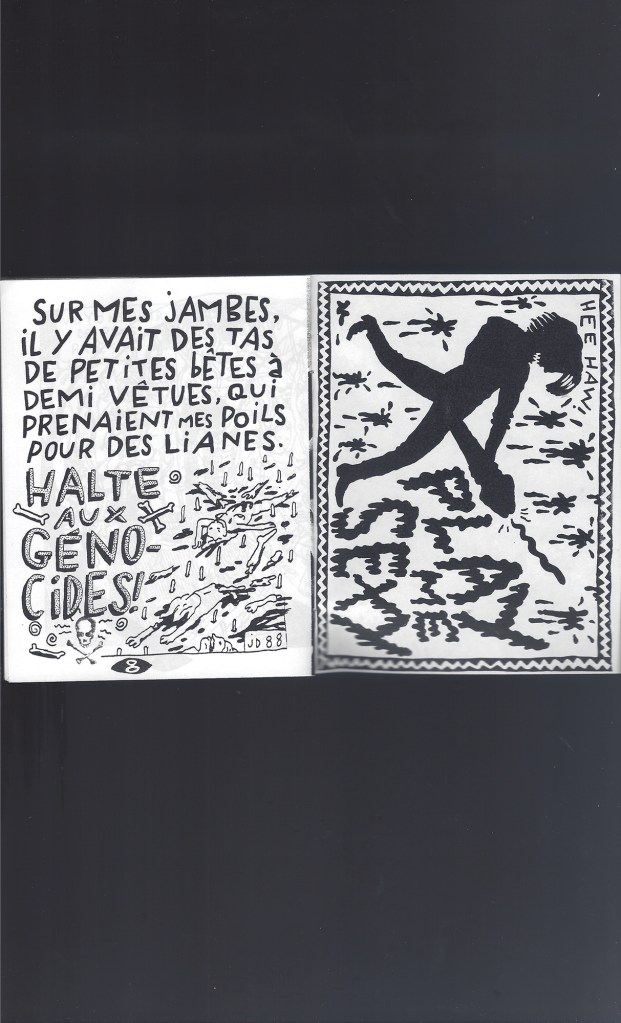 SUR MES JAMBES,
IL Y AVAIT DES TAS
DE PETITES BÊTES à
DEMI VÊTUES, QUI
PRENAIENT MES POILS
POUR DES LIANES.
HALTE
AUX
GÉNO-
CIDES!
JD88
8
HEE HAW!
PLAY
ME
SEXY